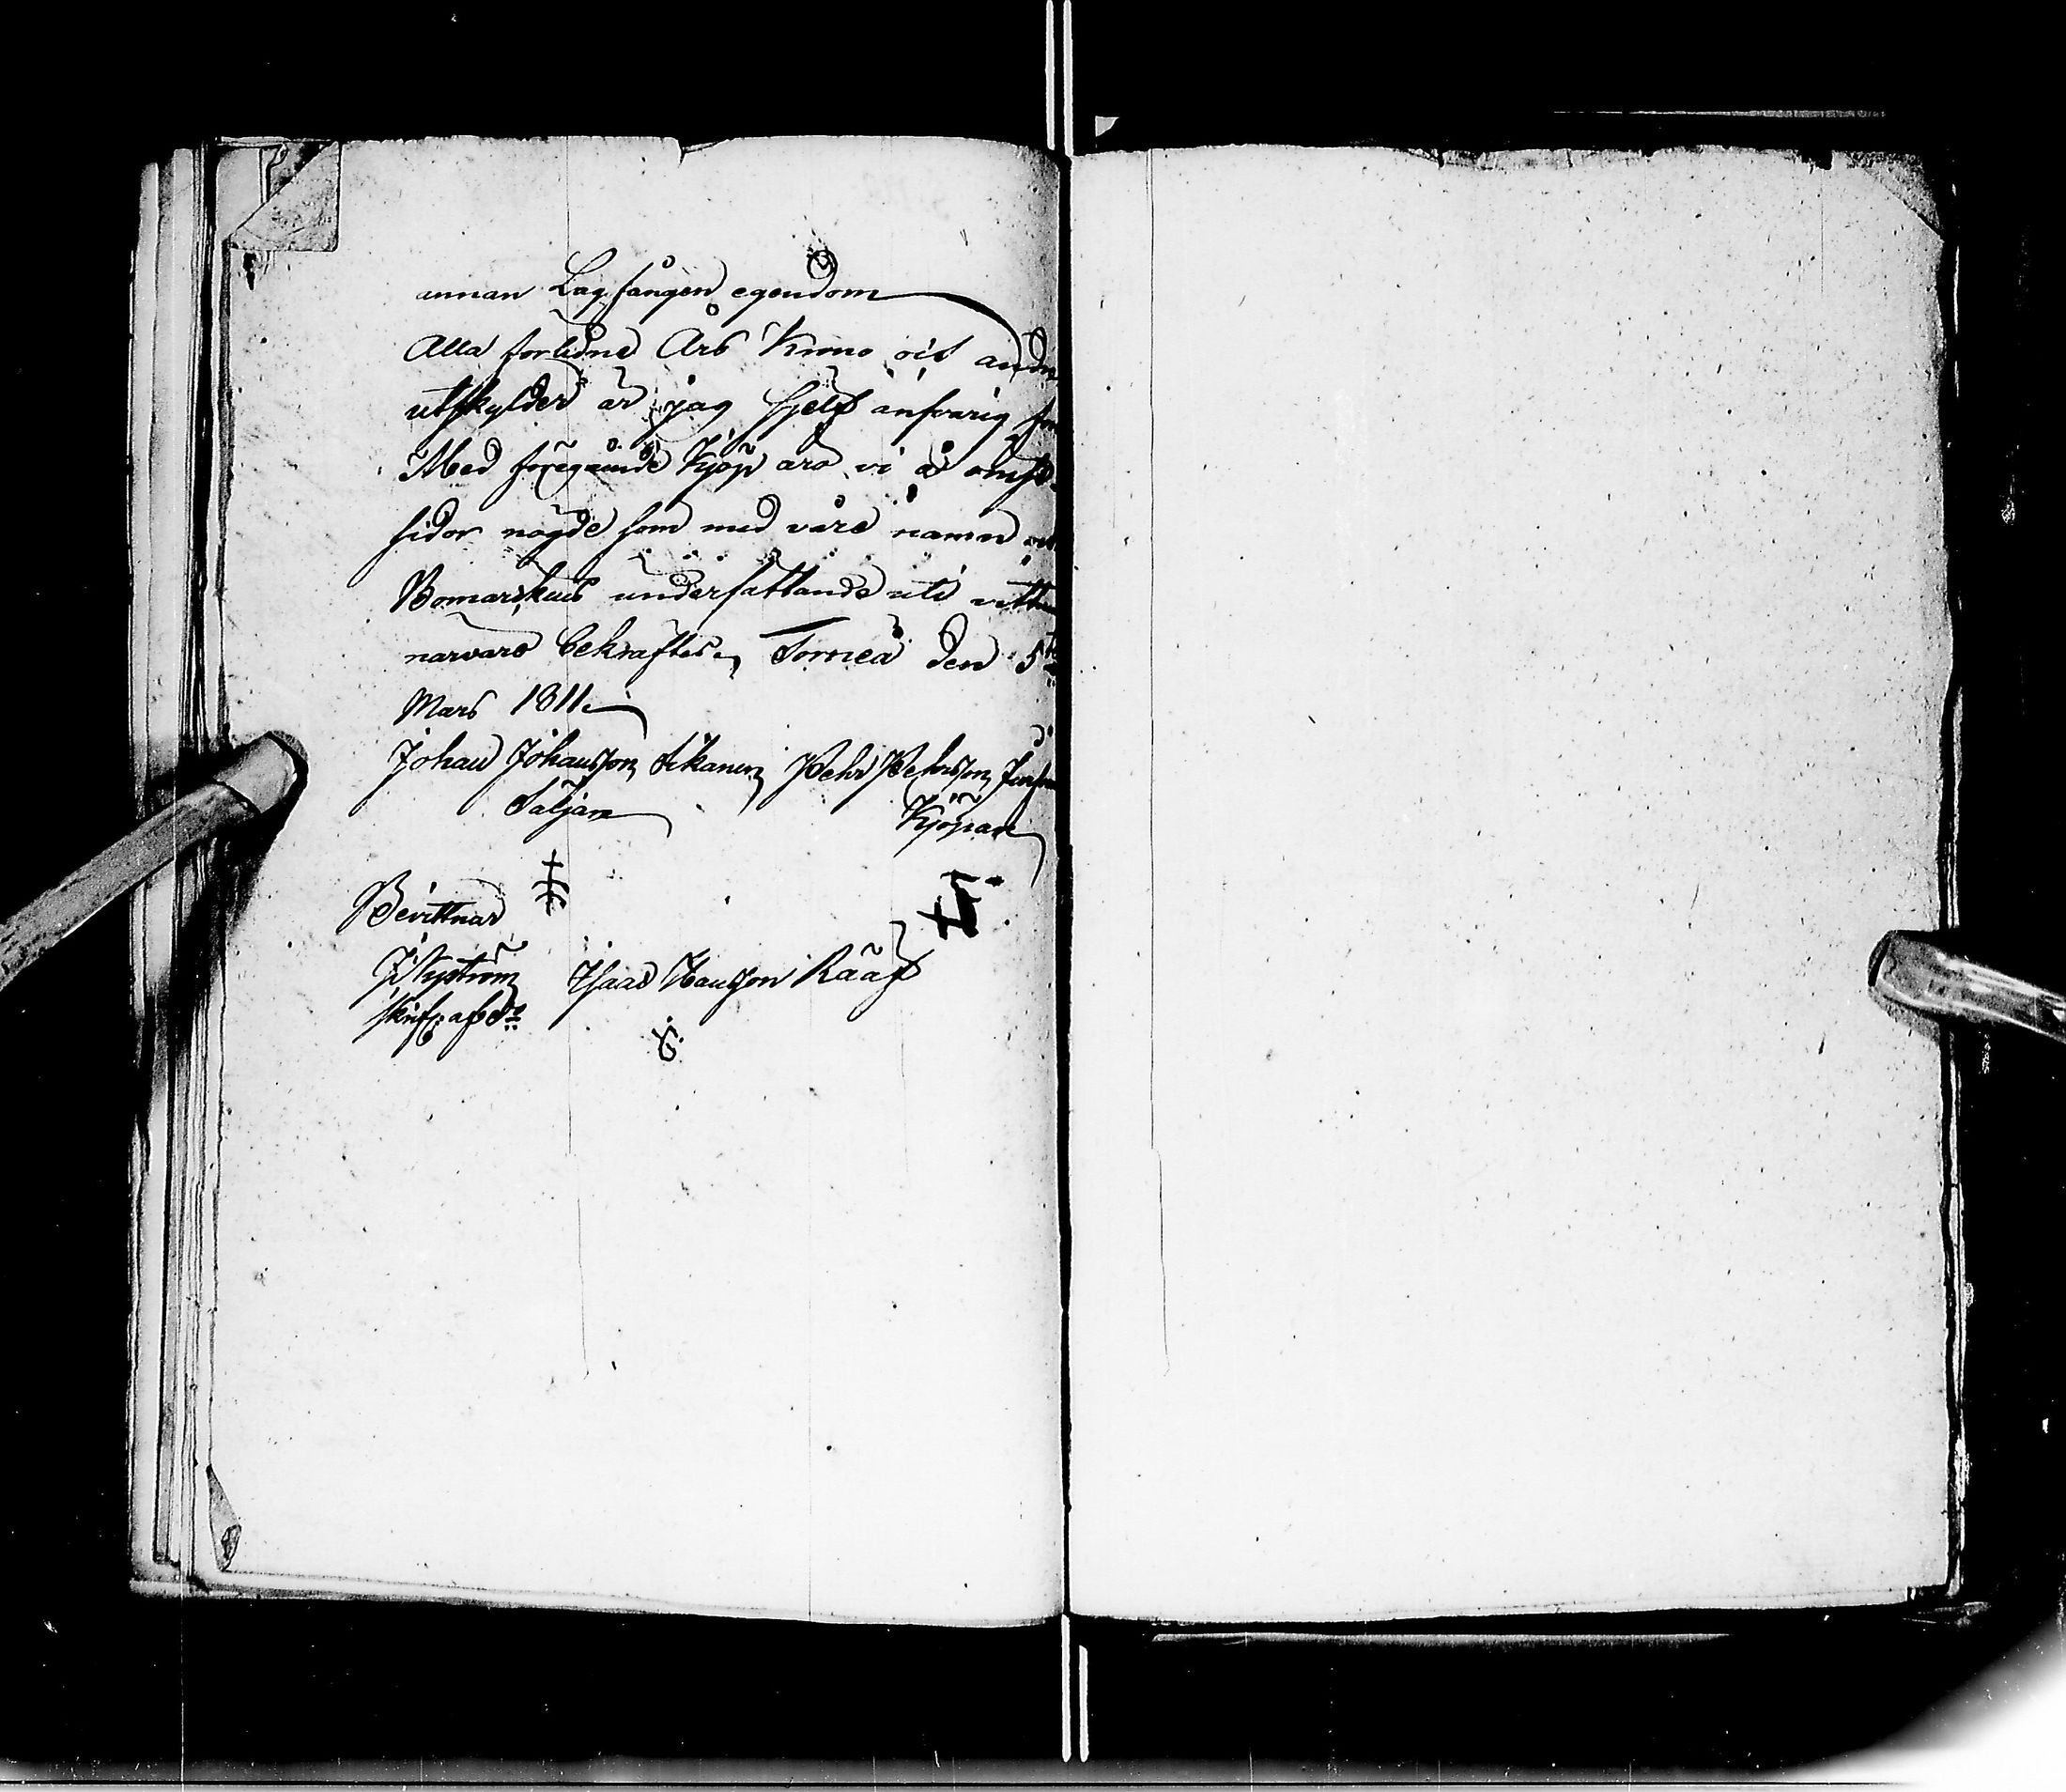 annan Lagfången egendom
Alla förledne Års Krono och andra
utskylder är jag sjelf ansvarig för
Med föregående Kjöp äro vi å ömse
sidor nögde som med våre namn och
Bomärkens undersättande uti vittnens
närvaro bekräftes, Torneå den 5te
Mars 1811
Johan Johansson Sikanen Pehr Pehrsson
Säljare Kjöpare
Bevittnas
J Nyström Isaac Hansson Rååf
skrifv: af D:o